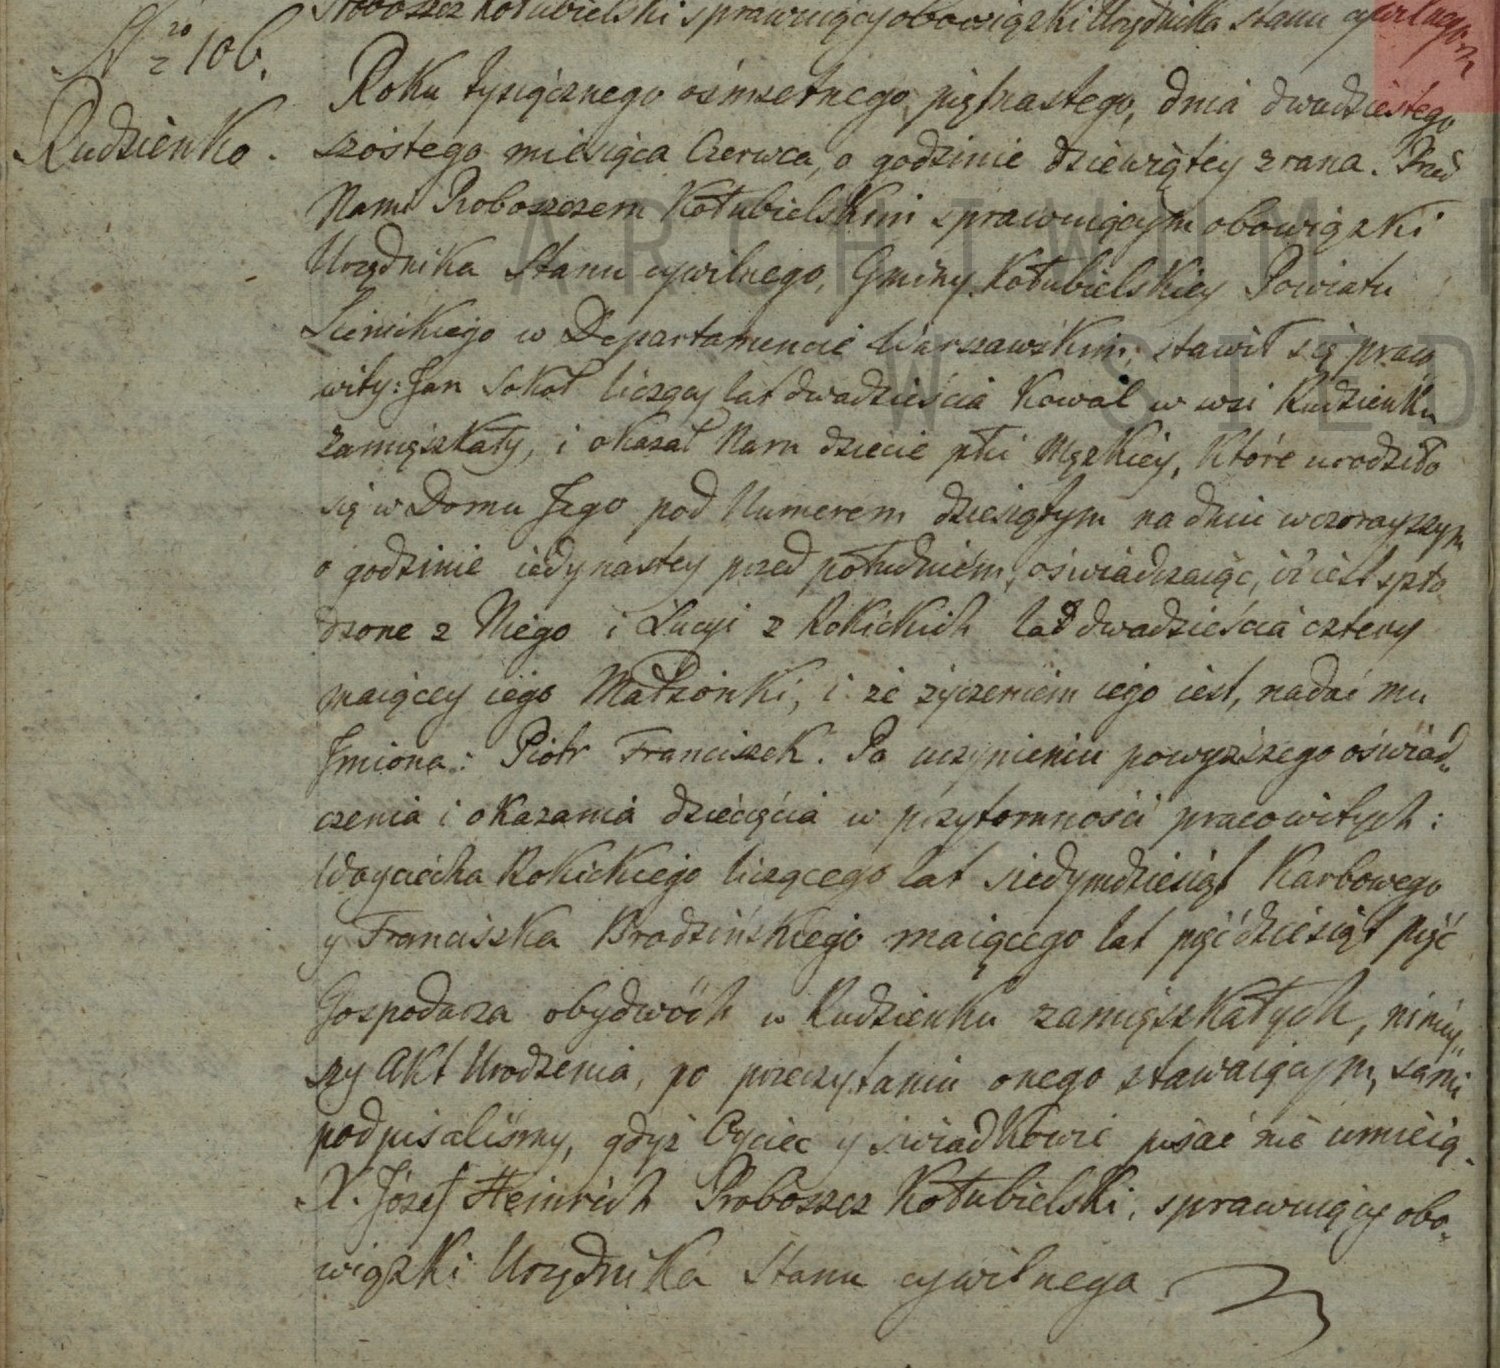 Proboszcz Kołubielski sprawuiący obowiązki Urzędnika stanu cywilnego
Nro 106.
Rudzienko.
Roku tysiącznego ośmsetnego piętnastego, dnia dwudziestego
szóstego miesiąca Czerwca, o godzinie dziewiątey z rana. Przed
Nami Proboszczem Kołubielskim sprawuiącym obowiązki
Urzędnika Stanu cywilnego, Gminy Kołubielskiey Powiatu
Siennickiego w Departamencie Warszawskim, stawił się praco
wity: Jan Sokoł liczący lat dwadzieścia Kowal w wsi Rudzienku
zamięszkały, i okazał Nam dziecie płci Męzkiey, które urodziło
się w Domu Jego pod Numerem dziesiątym na dniu wczorayszym
o godzinie iedynastey przed południem, oświadczaiąc, iż iest spło
dzone z Niego i Łucyi z Rokickich lat dwadzieścia cztery
maiącey iego Małżonki, i że życzeniem iego iest, nadać mu
Jmiona: Piotr Franciszek. Po uczynieniu powyższego oświad„
czenia i okazania dziecięcia w przytomności pracowitych:
Woyciecha Rokickiego liczącego lat siedymdziesiąt Karbowego
y Franciszka Brodzińskiego maiącego lat pięćdziesiąt pięć
Gospodarza obydwóch w Rudzienku zamięszkałych, niniey„
szy Akt Urodzenia, po przeczytaniu onego stawaiącym, sami
podpisaliśmy, gdyż Oyciec y świadkowie pisać nie umieią.
X. Józef Heinrich Proboszcz Kołubielski, sprawuiący obo„
wiązki Urzędnika Stanu cywilnego
ARCHIWUM P
W SIED